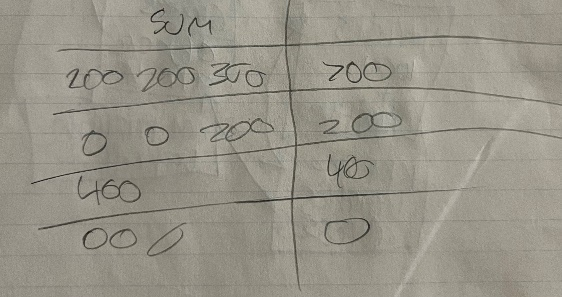 SUM
200 200 300 700
0 0 200 200
400 400
000 0